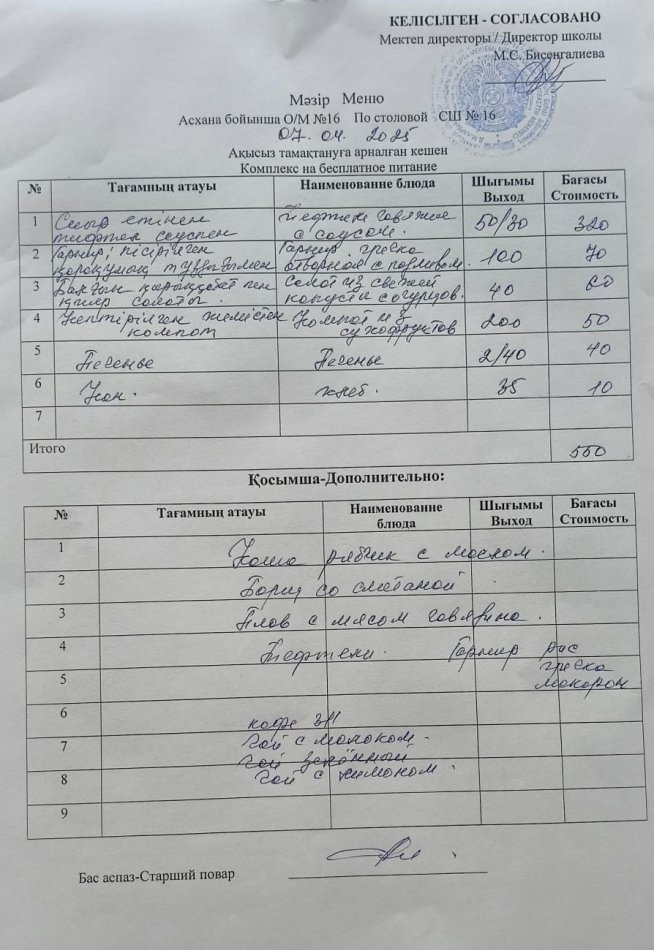 КЕЛІСІЛГЕН - СОГЛАСОВАНО
Мектеп директоры / Директор школы
М.С. Бисенгалиева
Мәзір Меню
Асхана бойынша О/М №16 По столовой СШ № 16
07. 04. 2025
Ақысыз тамақтануға арналған кешен
Комплекс на бесплатное питание
№ Тағамның атауы Наименование блюда Шығымы Выход Бағасы Стоимость
1 Сиыр етінен тифтел соуспен Тефтели говяжие с соусом. 50/30 320
2 Гарнир, пісірілген қарақұмық Гарнир, гречка отворная с подливом. 100 70
3 Балғын қырыққабат пен қияр салаты. Салат из свежей капусты с огурцов. 40 60
4 Кептірілген жемістен компот Компот из сухофруктов 200 50
5 Печенье Печенье 2/40 40
6 Нан. хлеб. 35 10
7
Итого 550
Қосымша-Дополнительно:
№ Тағамның атауы Наименование блюда Шығымы Выход Бағасы Стоимость
1 Каша с маслом.
2 Борщ со сметаной
3 Плов с мясом говядина.
4 Тефтели. Гарнир рис
гречка
5 макарон
6 кофе 3/1
7 чай с молоком.
чай зелённый
8 чай с лимоном.
9
Бас аспаз-Старший повар